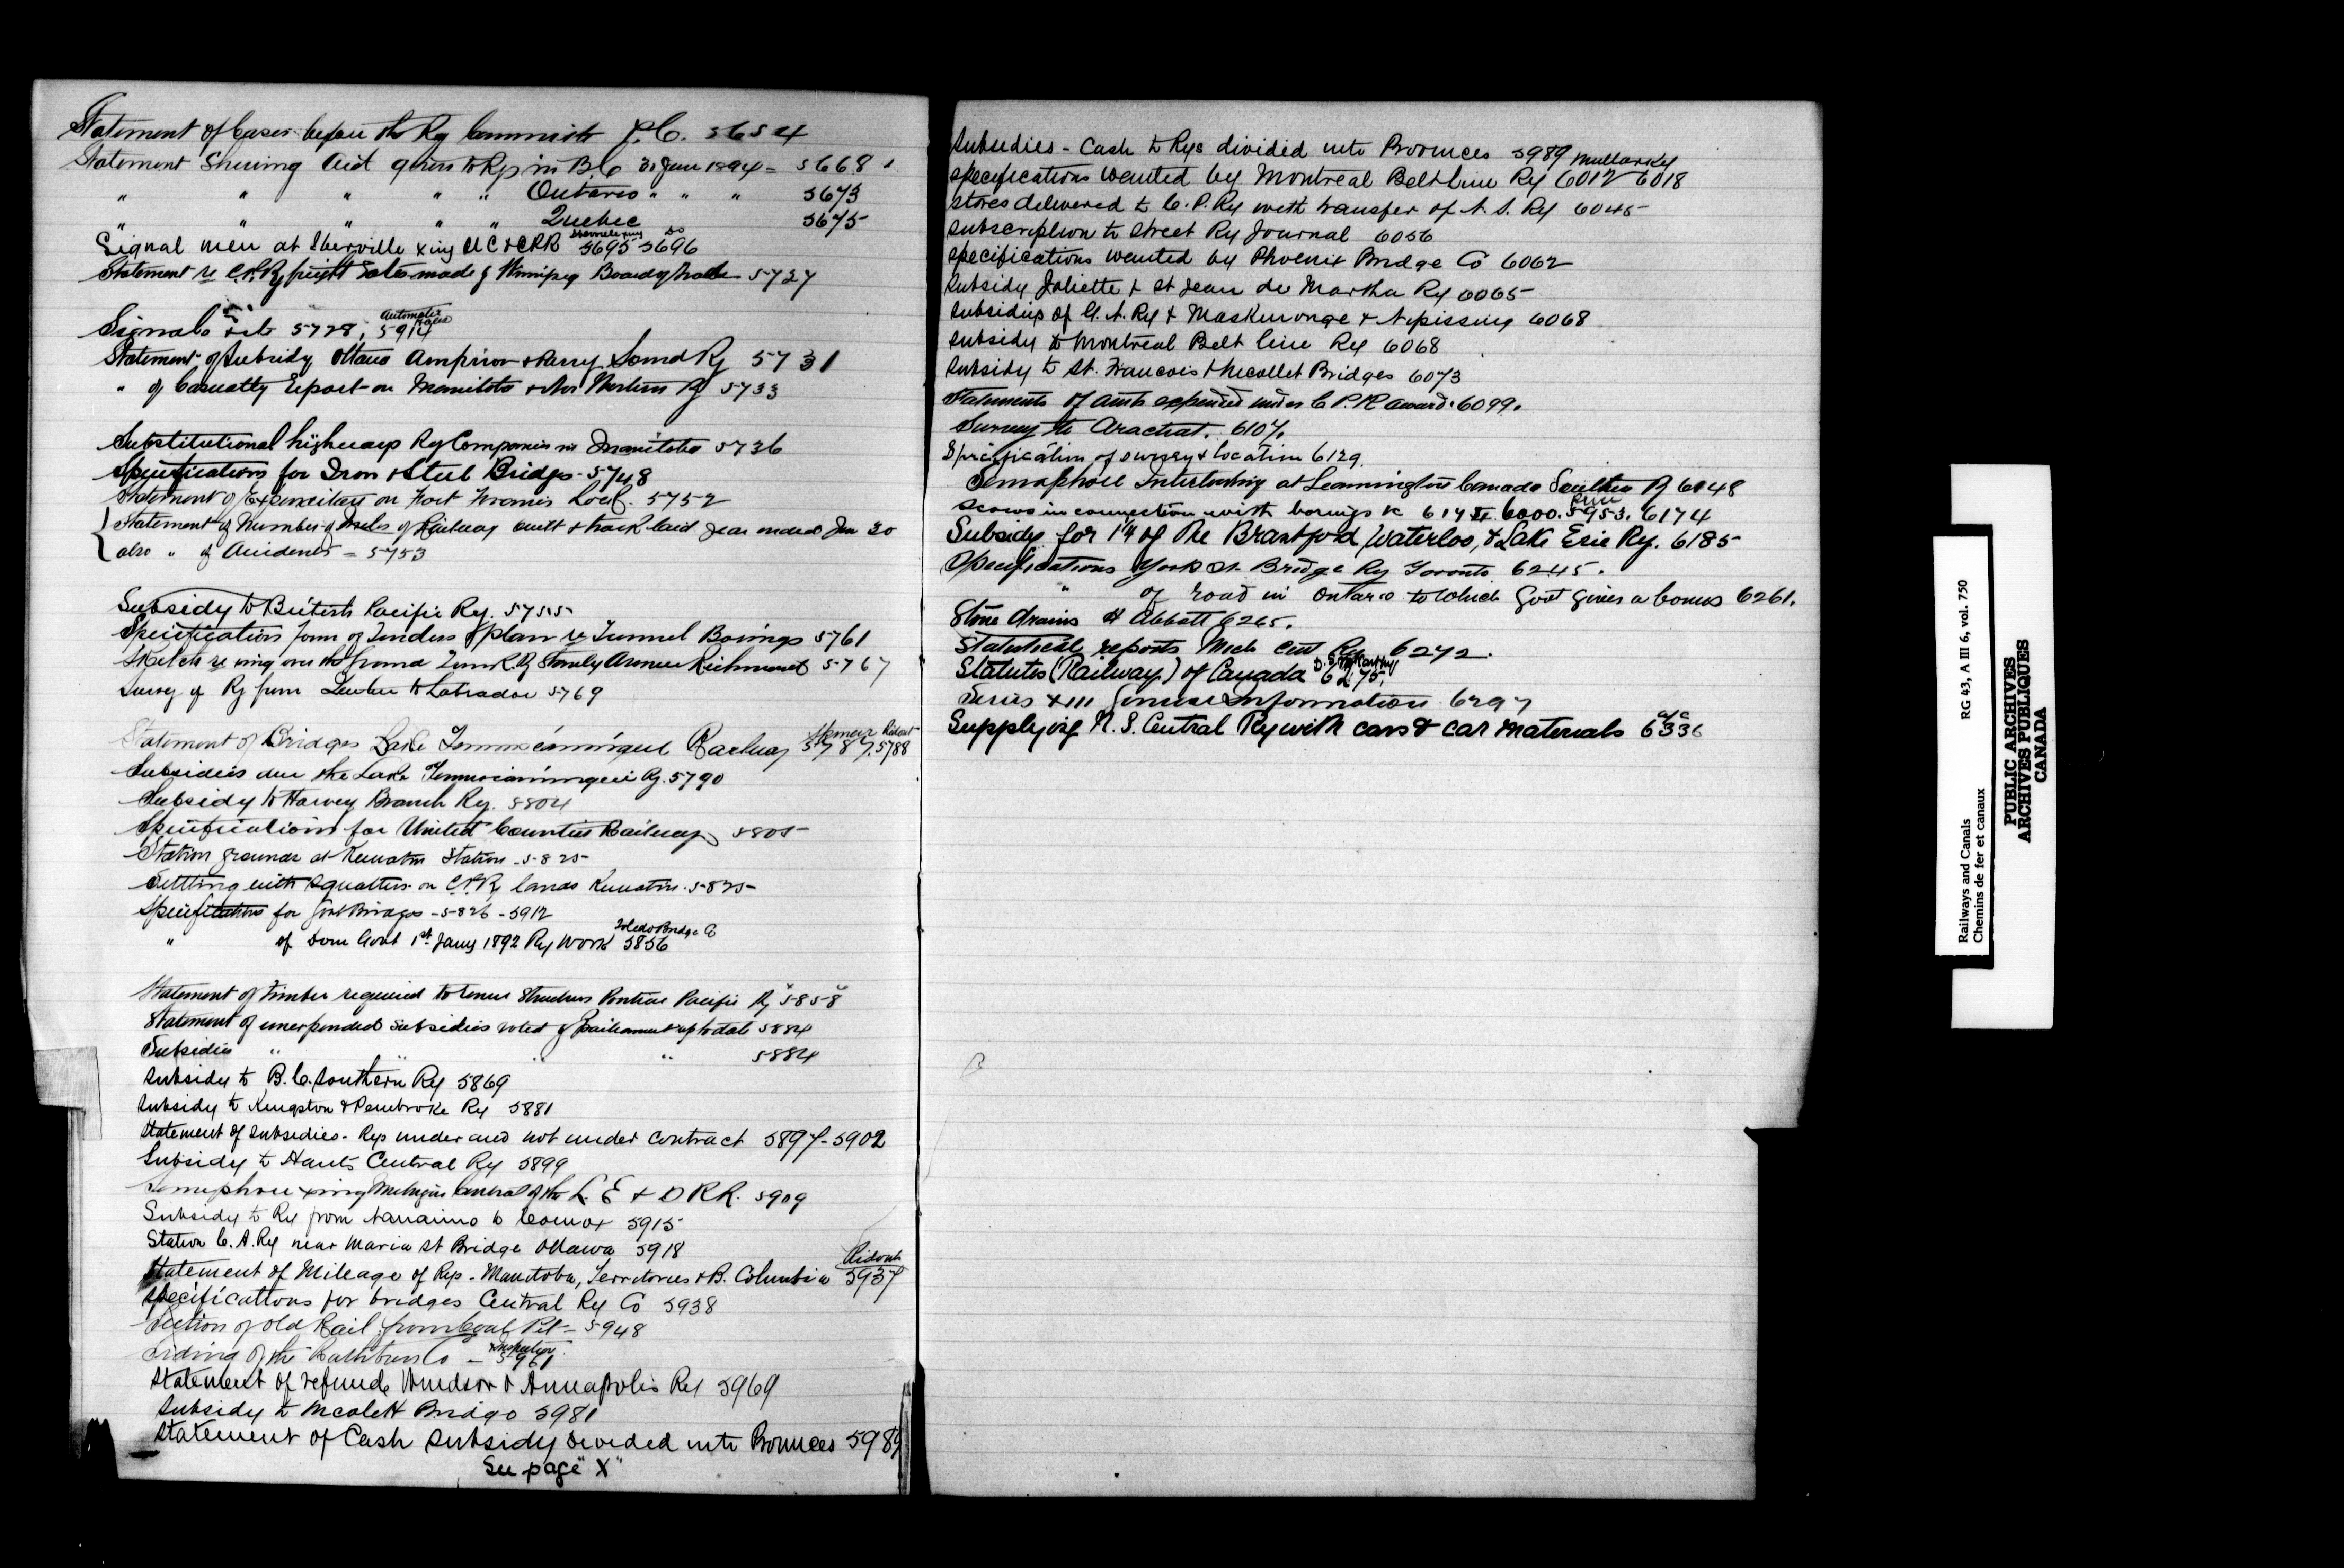 Statement of Cases before the Ry Committe P.C. 5654
Statement Shewing Aid given to Rys in B C 30 June 1894 = 5668
" " " " " Ontario " " " 5673
" " " " " Quebec 5675
Signal men at Iberville xing U C & CPR 5695 5696
Statement re C.P.Ry freight rates made by Winnipeg Board of trade 5727
Automatic
Signals 5728, 5914
Statement of Subsidy Ottawa Arnprior & Parry Sound Ry 5731
" of Casualty Report on Manitoba & Nor Western Ry 5733
Substitutional highways Ry Companies in Manitoba 5736
Specifications for Iron & Steel Bridges - 5748
Statement of Expenditure on Fort Francis Lock. 5752
Statement of Number of Miles of Railway built & track laid year ended Jun 30
also " of Accidents = 5753
Subsidy to British Pacific Ry. 5755
Specification form of Tenders & plan re Tunnel Borings 5761
Sketch re xing over the Grand Trunk Ry Stanley Avenue Richmond 5767
Survey of Ry from Quebec to Labrador 5769
Ridout
Statement of Bridges Lake Temmiscamingue Railway 5787, 5788
Subsidies due the Lake Temmiscamingue Ry. 5790
Subsidy to Harvey Branch Ry. 5804
Specifications for United Counties Railway 5805
Station grounds at Keewatin Station - 5825
Settling with Squatters on C.P.Ry lands Keewatin - 5825
Specifications for Govt Bridges - 5826 - 5912
Toledo Bridge Co
" of Dom Govt 1st Jany 1892 Ry Work 5856
Statement of timber required to renew Structures Pontiac Pacific Ry 5858
Statement of unexpended subsidies voted by Parliament up to date 5884
Subsidies " " " " 5884
Subsidy to B.C. Southern Ry 5869
Subsidy to Kingston & Pembroke Ry 5881
Statement of subsidies - Rys under and not under contract 5897 - 5902
Subsidy to Hants Central Ry 5899
Semaphore xing Michigan Central of the L. E & D R R. 5909
Subsidy to Ry from Nanaimo to Comox 5915
Station C. A. Ry near Maria St Bridge Ottawa 5918
Ridout
Statement of Mileage of Rys - Manitoba, Territories & B. Columbia 5937
Specifications for bridges Central Ry Co 5938
Section of Old Rail from Coal Pit - 5948
Inspection
Siding of the Rathbun Co - 5961
Statement of refunds Windsor & Annapolis Ry 5969
Subsidy to Nicolett Bridge 5981
Statement of Cash subsidy divided into Provinces 5989
See page "X"
Subsidies - Cash to Rys divided into Provinces 5989
Mullarky
specifications wanted by Montreal Belt Line Ry 6012 6018
Stores delivered to C. P. Ry with transfer of N. S. Ry 6045
Subscription to Street Ry Journal 6056
specifications wanted by Phoenix Bridge Co 6062
Subsidy Joliette & St Jean de Matha Ry 6065
Subsidies of C. A. Ry & Maskinonge & Nipissing 6068
Subsidy to Montreal Belt line Ry 6068
Subsidy to St. Francois & Nicollet Bridges 6073
Statements of amts expended under C P. R award. 6099.
Survey to Arachat. 6107.
Specification of survey & location 6129.
Semaphore Interlocking at Leamington Canada Southern Ry 6148
Scows in connection with borings 6000. 5953. 6174
Subsidy for 14 of the Brantford, Waterloo, & Lake Erie Ry. 6185
Specifications York St Bridge Ry Toronto 6245.
" of road in Ontario to which Govt gives a bonus 6261.
Stone drains H Abbott 6265.
Statistical reports Mich Cent Ry 6272.
D. McCarthy
Statutes (Railway) of Canada 6275,
Series XIII General Information 6297
Supplying N. S. Central Ry with cars & car materials 6336
Railways and Canals
Chemins de fer et canaux
RG 43, A III 6, vol. 750
PUBLIC ARCHIVES
ARCHIVES PUBLIQUES
CANADA